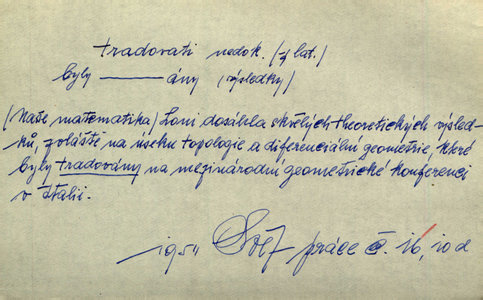 tradovati nedok. (z lat.)
byly ——— ány (výsledky)
(Naše matematika) Loni dosáhla skvělých theoretických výsled-
ků, zvláště na úseku topologie a diferenciální geometrie, které
byly tradovány na mezinárodní geometrické konferenci
v Italii.
1954 práce č. 16, 10 d